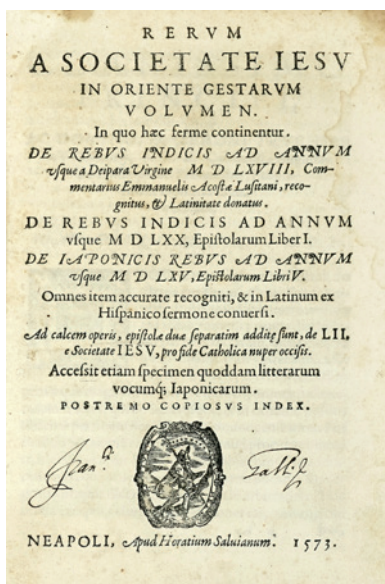 RERVM
A SOCIETATE IESV
IN ORIENTE GESTARVM
VOLVMEN.
In quo hæc ferme continentur.
DE REBVS INDICIS AD ANNVM
vſque a Deipara Virgine M D LXVIII, Com-
mentarius Emmanuelis Acoſtæ Luſitani, reco-
gnitus, & Latinitate donatus.
DE REBVS INDICIS AD ANNVM
vſque M D LXX, Epiſtolarum Liber I.
DE IAPONICIS REBVS AD ANNVM
vſque M D LXV, Epiſtolarum Libri V.
Omnes item accurate recogniti, & in Latinum ex
Hiſpanico ſermone conuerſi.
Ad calcem operis, epiſtolæ duæ ſeparatim additę ſunt, de LII,
e Societate IESV, pro fide Catholica nuper occiſis.
Acceſsit etiam ſpecimen quoddam litterarum
vocumq; Iaponicarum.
POSTREMO COPIOSVS INDEX.
NEAPOLI, Apud Horatium Saluianum. 1573.